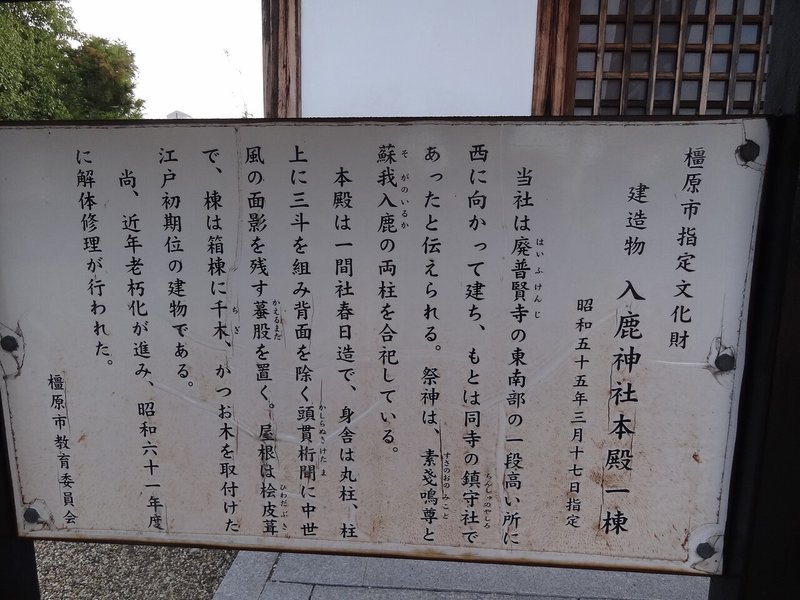 橿原市指定文化財
建造物 入鹿神社本殿一棟
昭和五十五年三月十七日指定
当社は廃普賢寺の東南部の一段高い所に
はいふけんじ
西に向かって建ち、もとは同寺の鎮守社で
ちんじゅのやしろ
あったと伝えられる。祭神は、素戔嗚尊と
すさのおのみこと
蘇我入鹿の両柱を合祀している。
そがのいるか
本殿は一間社春日造で、身舎は丸柱、柱
上に三斗を組み背面を除く頭貫桁間に中世
かしらぬきけたま
風の面影を残す蟇股を置く。屋根は桧皮葺
かえるまた
ひわだぶき
で、棟は箱棟に千木、がつお木を取付けた
ちぎ
江戸初期位の建物である。
尚、近年老朽化が進み、昭和六十一年度
に解体修理が行われた。
橿原市教育委員会